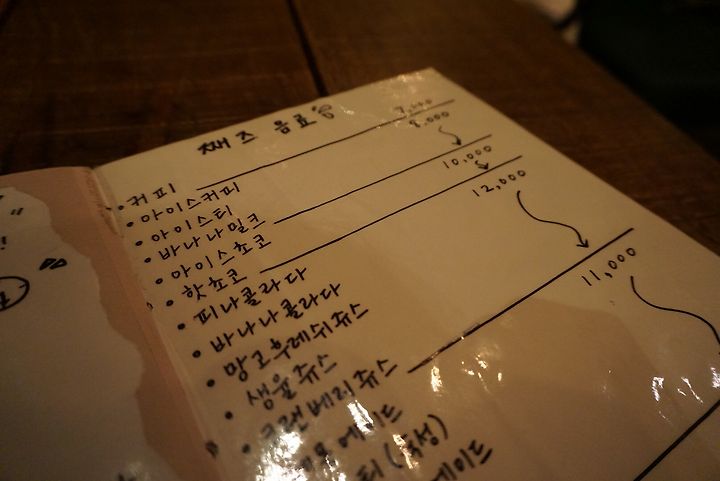 째즈 음료
· 커피 7,000
· 아이스커피 8,000
· 아이스티
· 바나나밀크 10,000
· 아이스쵸코
· 핫쵸코 12,000
· 피나콜라다
· 바나나콜라다
· 망고후레쉬쥬스
· 생율쥬스
· 크랜베리쥬스 11,000
에이드
티 (녹성)
에이드